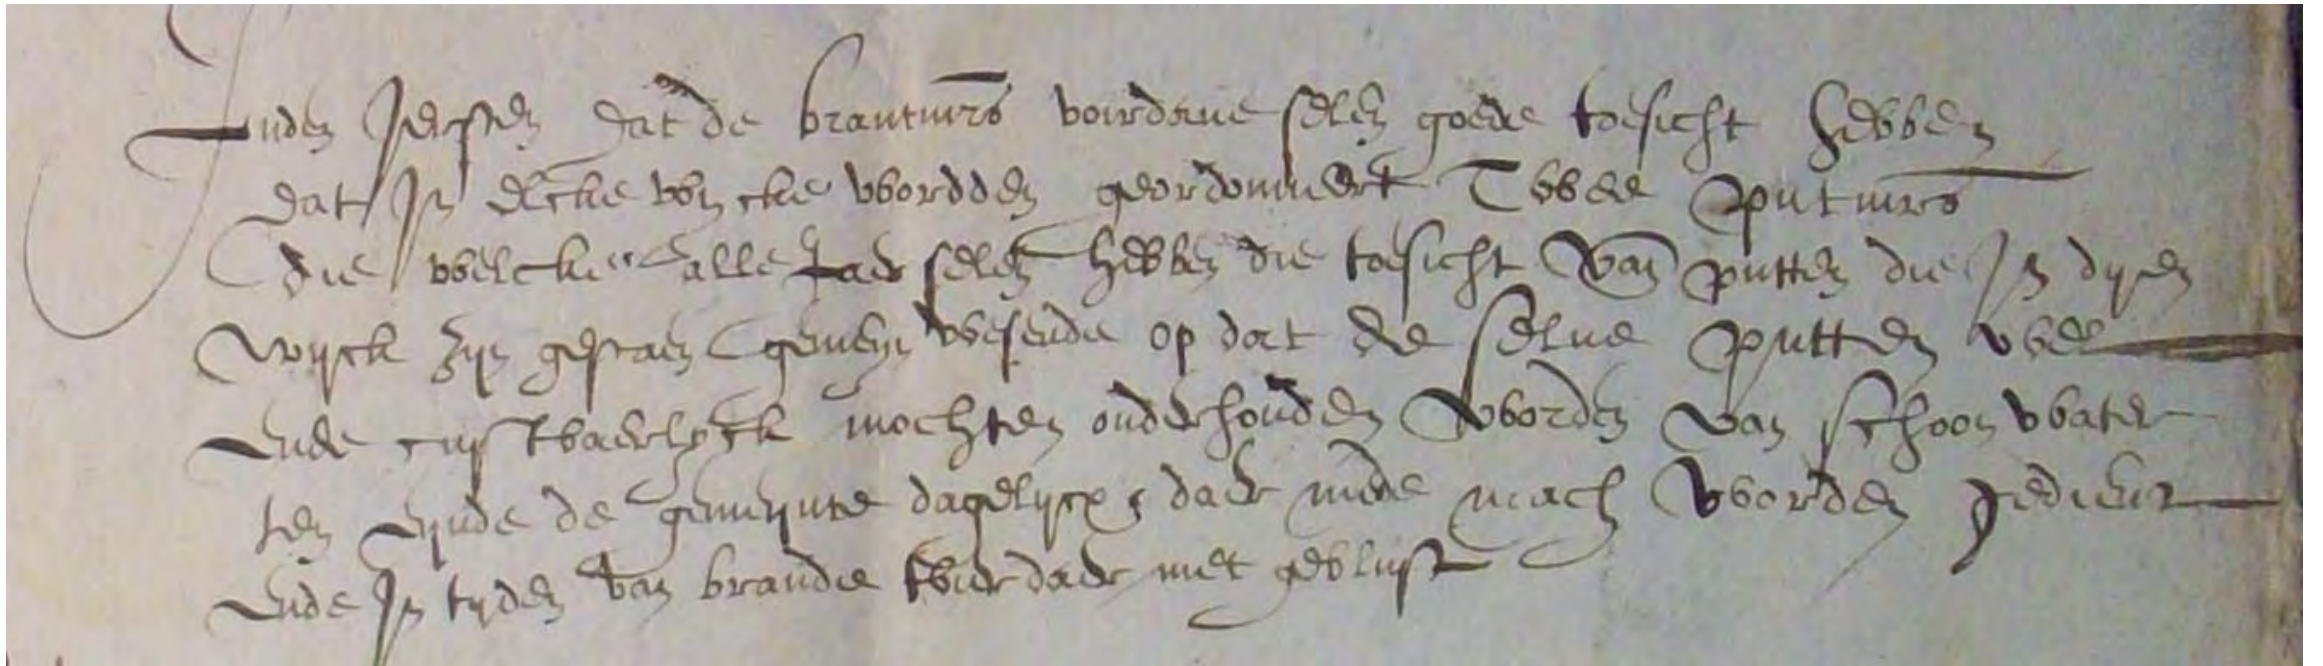 Inden Iersten dat de brantmrs voirdane selen goede toesicht hebben
dat In elcke wycke wordden geordonneert Twee putmrs
die welcke alle Jaer selen hebben die toesicht van putten die In dyen
wyck zyn gestaen gemeyn wesende op dat de selve putten wel
Ende mochten onderhouden worden van schoon water
ten Eynde de gemeynte dagelycx daer mede mach worden gedient
Ende In tyden van brande tvier daer met geblust